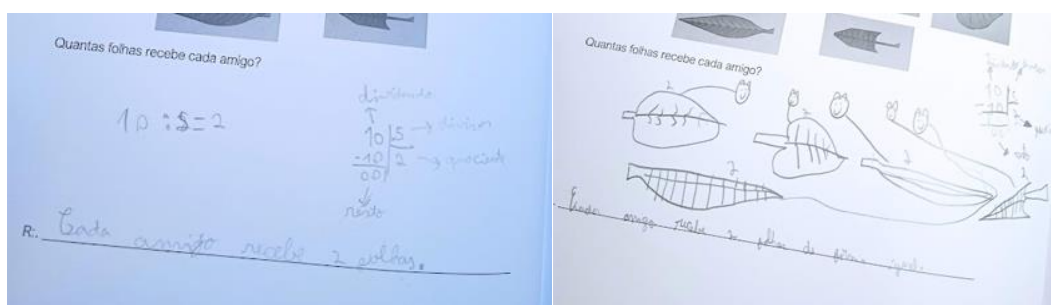 Quantas folhas recebe cada amigo?
10 : 5 = 2
dividendo
10 5 → divisor
-10 2 → quociente
00
resto
R:. Cada amigo recebe 2 folhas.
Quantas folhas recebe cada amigo?
2
2
2
2
2
10
10 2
00
resto
Cada amigo recebe 2 folhas de forma igual.